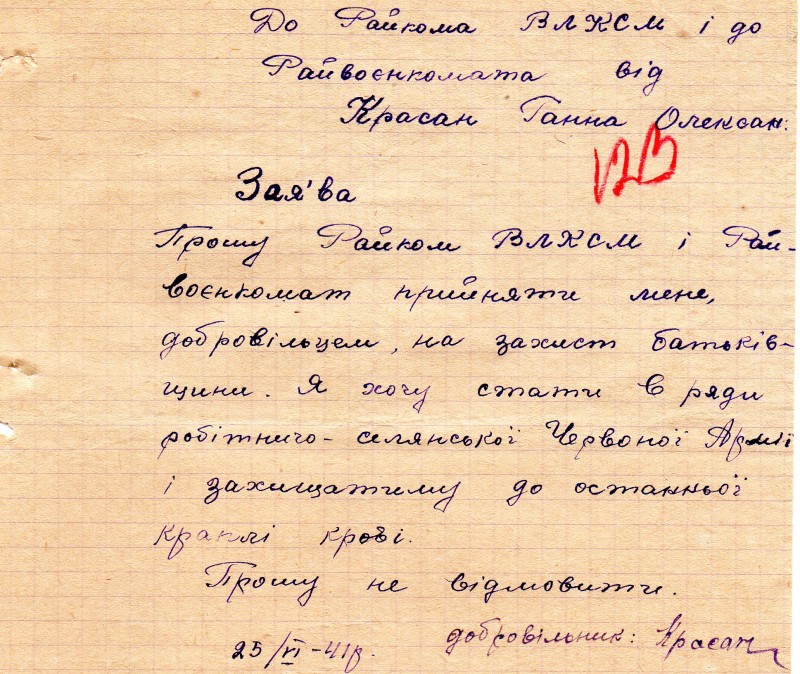 До Райкома ВЛКСМ і до
Райвоєнкомата від
Красан Ганна Олексан:
Зая'ва
Прошу Райком ВЛКСМ і Рай-
воєнкомат прийняти мене,
добровільцем, на захист батьків-
щини. Я хочу стати в ряди
робітничо-селянської Червоної Армії
і захищатиму до останньої
краплі крові.
Прошу не відмовити.
25/VI-41р. добровільник: Красан